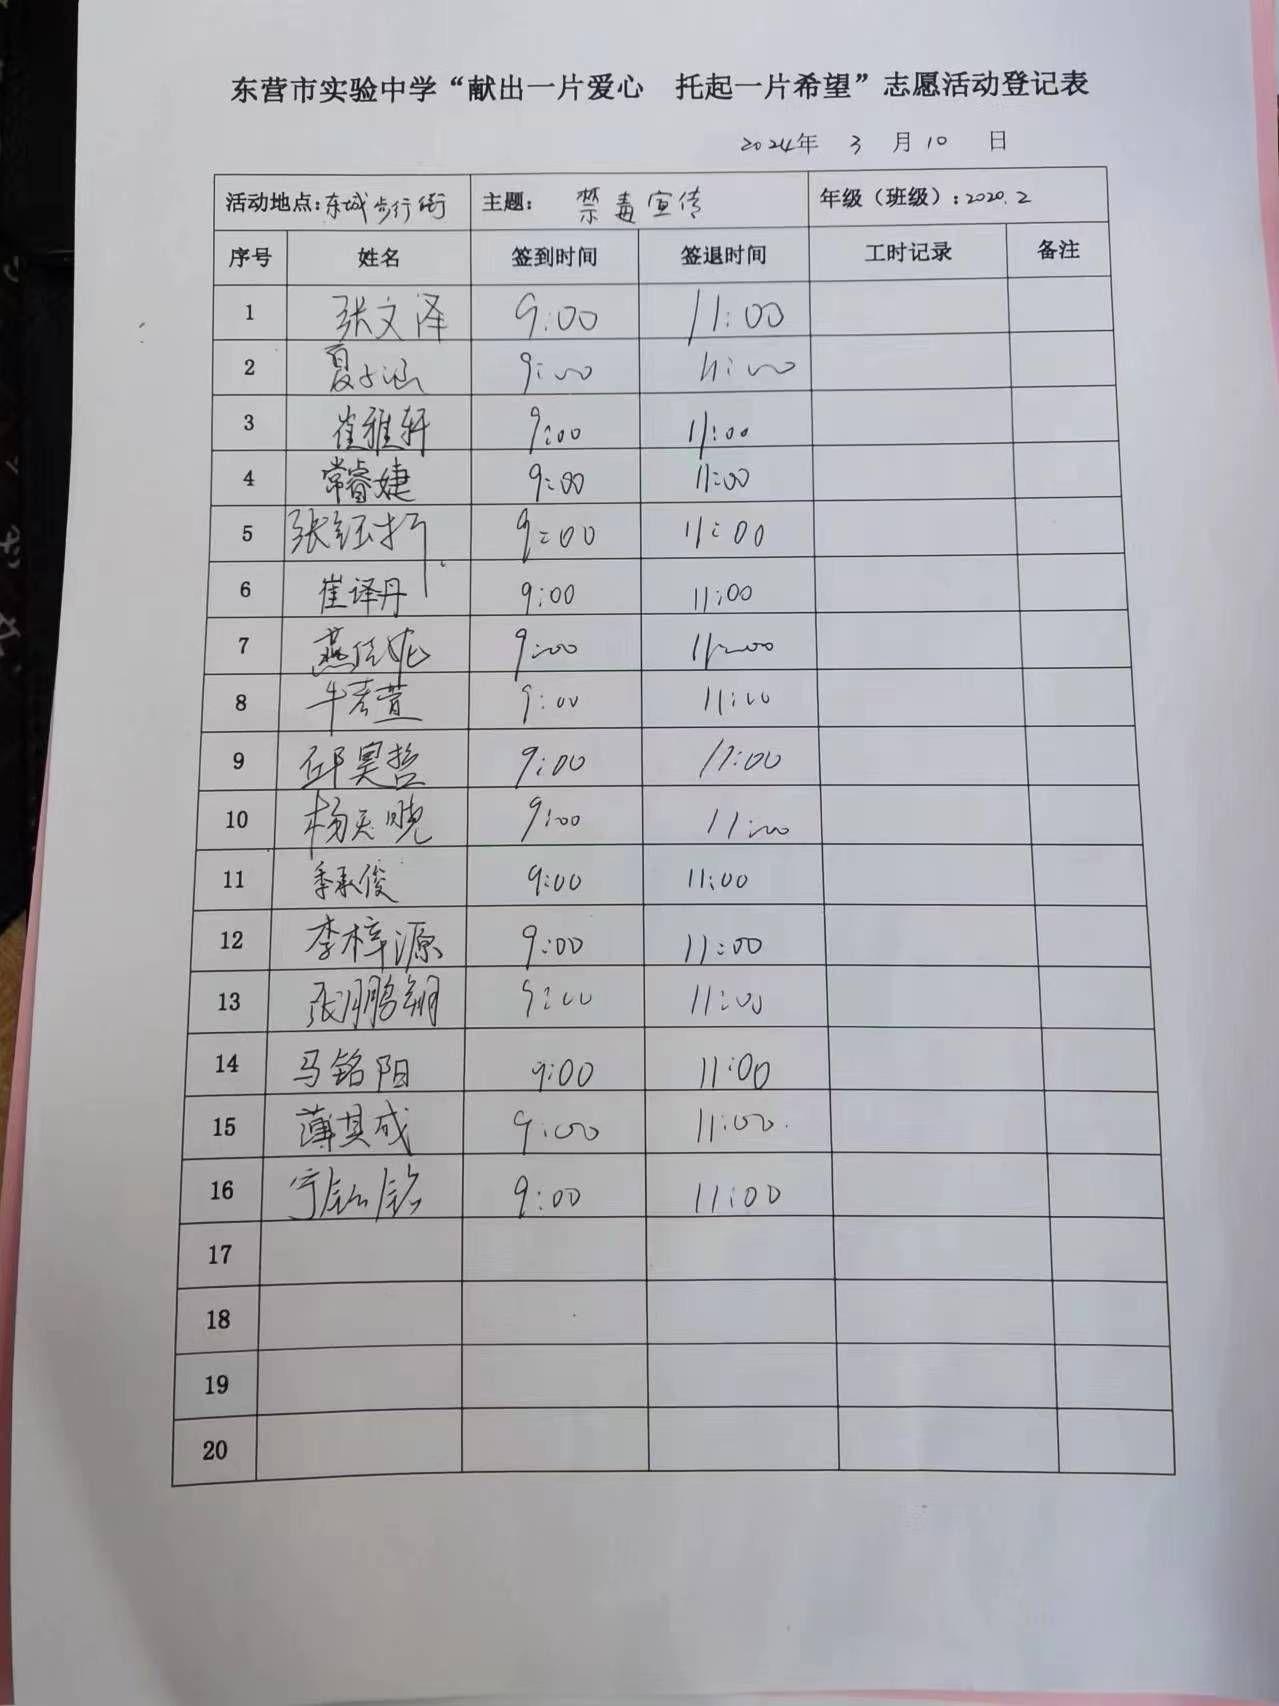 东营市实验中学“献出一片爱心 托起一片希望”志愿活动登记表
2024年 3 月 10 日
活动地点:东城步行街 主题: 禁毒宣传 年级(班级):2020.2
序号 姓名 签到时间 签退时间 工时记录 备注
1 张文泽 9:00 11:00
2 夏子涵 9:00 11:00
3 崔雅轩 9:00 11:00
4 常睿婕 9:00 11:00
5 9:00 11:00
6 崔译丹 9:00 11:00
7 9:00 11:00
8 9:00 11:00
9 邱昊哲 9:00 11:00
10 9:00 11:00
11 季承俊 9:00 11:00
12 李梓源 9:00 11:00
13 9:00 11:00
14 马铭阳 9:00 11:00
15 薄其成 9:00 11:00
16 9:00 11:00
17
18
19
20